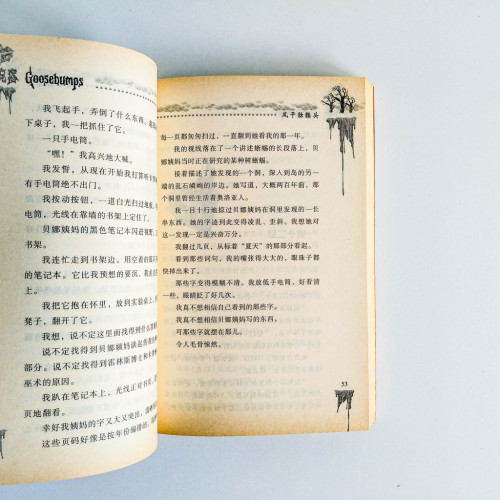 Goosebumps
我飞起手，弄倒了什么东西，
下桌子，我一把抓住了它。
一只手电筒。
“嘿！”我高兴地大喊。
我发誓，从现在开始我打算听
有手电筒绝不出门。
我按动按钮，一道白光扫过地
筒，光线在靠墙的书架上定住了。
贝娜姨妈的黑色笔记本闪进
书架。
我连忙走到书架边，用空着的
的笔记本。它比我预想的要沉，
了。
我把它抱在怀里，放到实验桌上，
凳子，翻开了它。
我想，说不定这里面找得到什么
说不定找得到贝娜姨妈谈起
部分。说不定找得到霍林斯博士和
巫术的原因。
我趴在笔记本上，光线正对书页，
页地翻看。
幸好我姨妈的字又大又突出，
这些页码好像是按年份编排的。
鬼子骷髅头
每一页都匆匆扫过，一直翻到她看我的那一年。
我的视线落在了一个讲述蜥蜴的长段落上，贝
娜姨妈当时正在研究的某种树蜥蜴。
接着描述了她发现的一个洞，深入到岛的另一
端的乱石嶙峋的岸边。她写道，大概两百年前，那
个洞曾经生活着奥洛亚人。
我一目十行地掠过贝娜姨妈在洞里发现的一长
串东西。她的字迹到此变得凌乱、歪斜。我想她对
这一发现一定是兴奋万分。
我翻过几页，从标着“夏天”的那部分看起。
看到那些词句，我的嘴张得大大的，眼珠子都
快掉出来了。
那些字变得模糊不清。我放低手电筒，好看清
一些，眼睛眨了好几次。
我真不想相信自己看到的那些字。
我真不想相信贝娜姨妈写的东西。
可那些字就摆在那儿。
令人毛骨悚然。
53